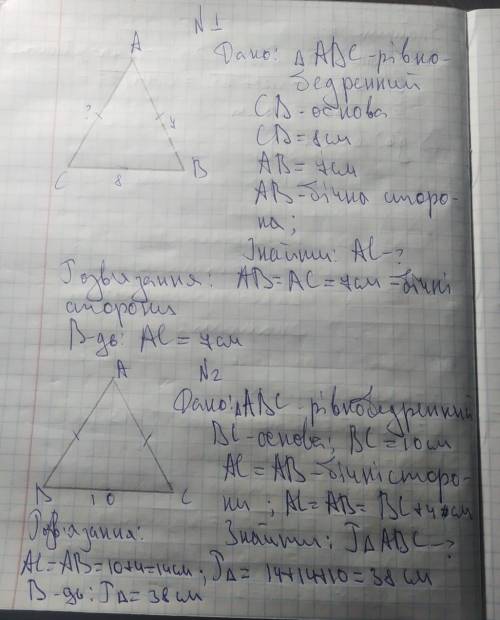 №1
A
Дано: △ABC-рівно-
бедренний
CB-основа
? 7
CB=8см
C 8 B
AB=7см
AB-бічна сторо-
на;
Знайти: AC-?
Розвязання: AB=AC=7см-бічні
сторони
В-дь: AC=7см
A
№2
Дано: △ABC-рівнобедренний
BC-основа; BC=10см
AC=AB-бічні сторо-
B 10 C
ни; AC=AB=BC+4см
Розвязання:
Знайти: P△ABC-?
AC=AB=10+4=14см; P△=14+14+10=38см
В-дь: P△=38см